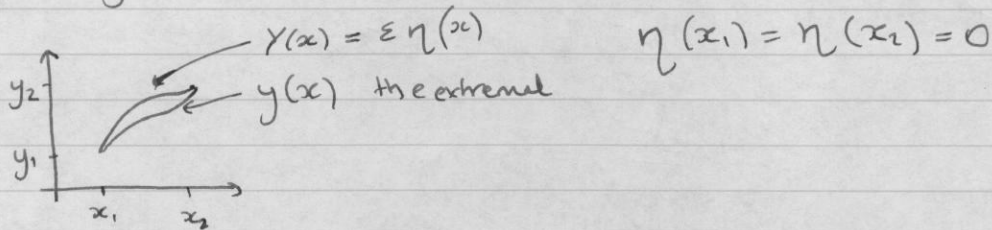 Y(x) = ε η(x)
η(x₁) = η(x₂) = 0
y₂
y(x) the extremal
y₁
x₁
x₂